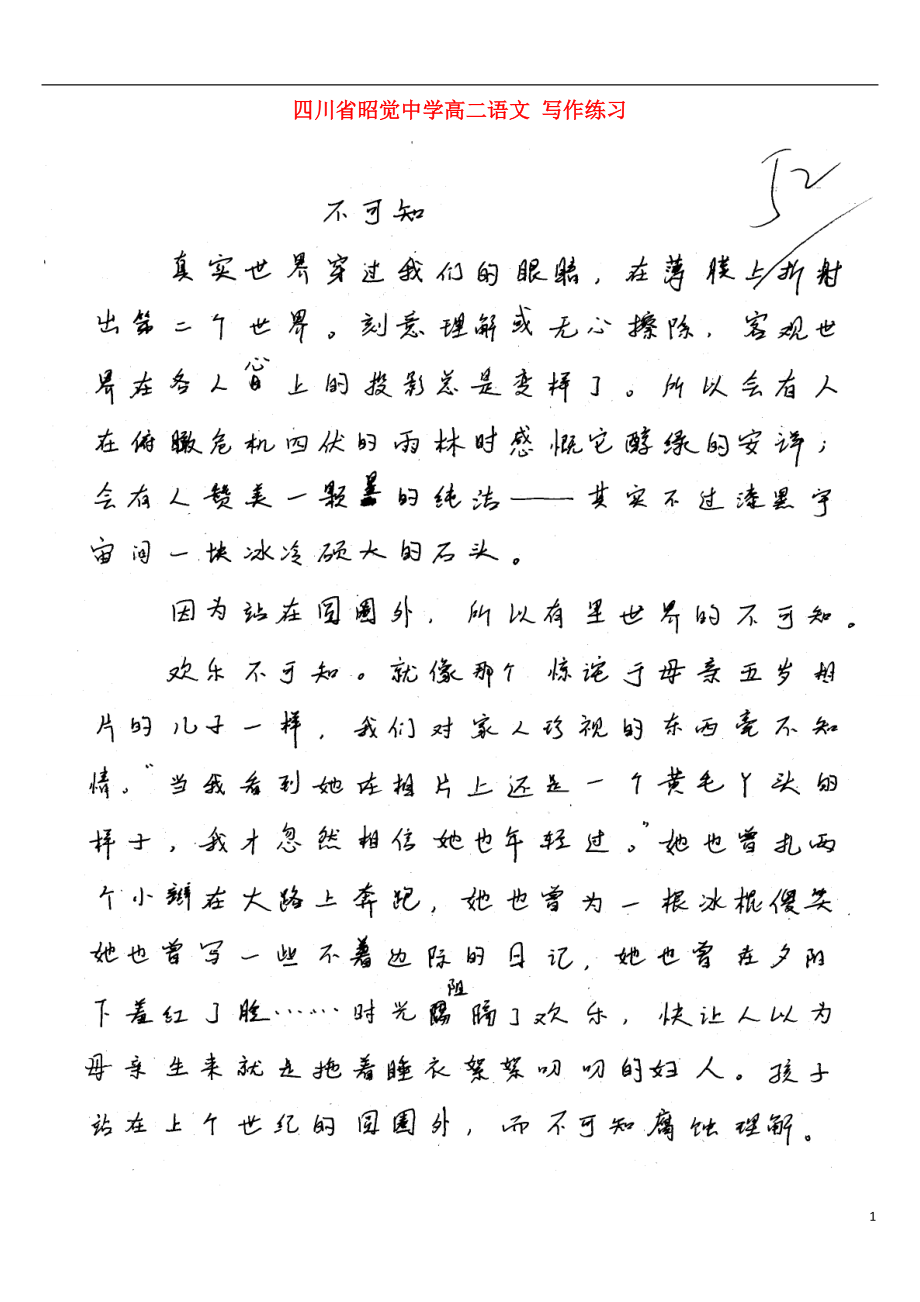 四川省昭觉中学高二语文 写作练习
52
不可知
真实世界穿过我们的眼睛，在薄膜上折射
出第二个世界。刻意理解或无心擦除，客观世
界在各人心目上的投影总是变样了。所以会有人
在俯瞰危机四伏的雨林时感慨它醇绿的安详；
会有人赞美一颗星的纯洁——其实不过漆黑宇
宙间一块冰冷硕大的石头。
因为站在圆圈外，所以有里世界的不可知。
欢乐不可知。就像那个惊诧于母亲五岁相
片的儿子一样，我们对家人珍视的东西毫不知
情。“当我看到她在相片上还是一个黄毛丫头的
样子，我才忽然相信她也年轻过。”她也曾扎两
个小辫在大路上奔跑，她也曾为一根冰棍傻笑
她也曾写一些不着边际的日记，她也曾在夕阳
下羞红了脸……时光阻隔了欢乐，快让人以为
母亲生来就是拖着睡衣絮絮叨叨的妇人。孩子
站在上个世纪的圆圈外，而不可知腐蚀理解。
1